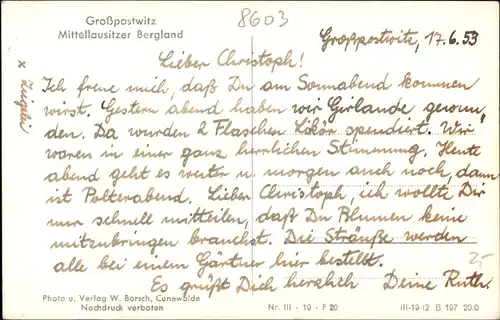 Großpostwitz
Mittellausitzer Bergland
8603
Großpostwitz, 17.6.53
Lieber Christoph!
Ich freue mich, daß Du am Sonnabend kommen
wirst. Gestern abend haben wir Girlande gewun-
den. Da wurden 2 Flaschen Likör spendiert. Wir
waren in einer ganz herrlichen Stimmung. Heute
abend geht es weiter u. morgen auch noch, dann
ist Polterabend. Lieber Christoph, ich wollte Dir
nur schnell mitteilen, daß Du Blumen keine
mitzubringen brauchst. Die Sträuße werden
alle bei einem Gärtner hier bestellt.
Es grüßt Dich herzlich Deine Ruth.
25
Photo u. Verlag W. Borsch, Cunewalde
Nachdruck verboten
Nr. III - 19 - F 20
III-19-12 B 197 20.0